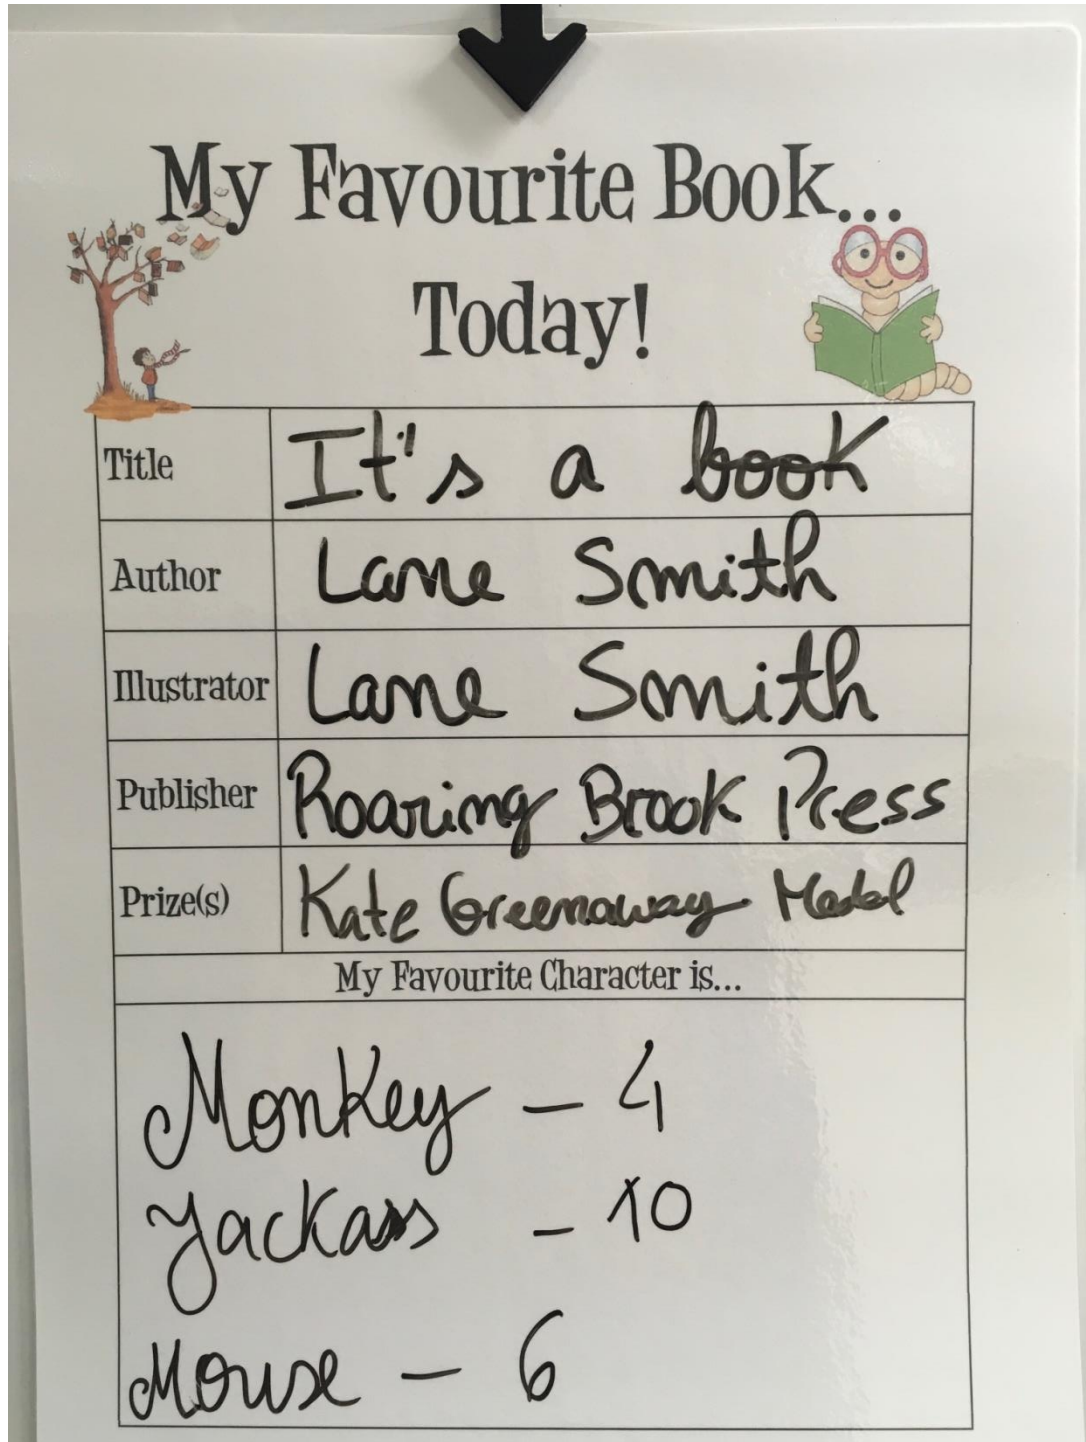 My Favourite Book...
Today!
Title It's a book
Author Lane Smith
Illustrator Lane Smith
Publisher Roaring Brook Press
Prize(s) Kate Greenaway Medal
My Favourite Character is...
Monkey - 4
Jackass - 10
Mouse - 6